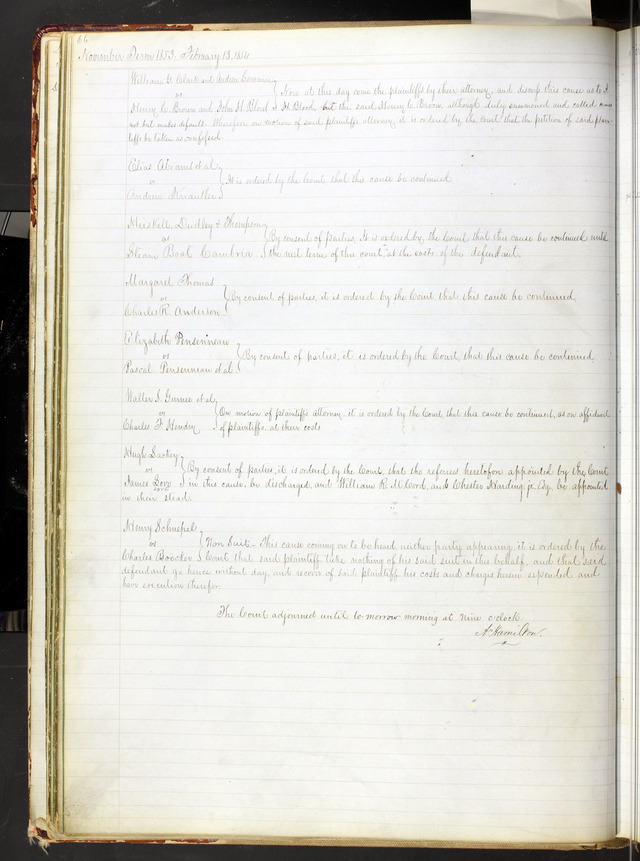 66
November Term 1853. February 13, 1854
William G. Clark and
vs } Now at this day come the plaintiffs by their attorney, and dismiss this cause as to J
Henry C. Brown and John H. Blood } H Blood, but the said Henry C. Brown although duly summoned and called comes
not but makes default. Wherefore on motion of said plaintiffs attorney it is ordered by the Court that the petition of said plain-
tiffs be taken as confessed.
Elias Abrams et al
vs } It is ordered by the Court that this cause be continued
Andrew
Dudley & Thompson
vs } By consent of parties, It is ordered by the Court that this cause be continued until
Steam Boat Cambria } the next term of this court, at the costs of the defendant.
Margaret Thomas
vs } By consent of parties, it is ordered by the Court that this cause be continued,
Charles R. Anderson
Elizabeth Pensenneau
vs } By consent of parties, it is ordered by the Court, that this cause be continued.
Pascal Pensenneau et al
Walter S. Gurnee et al
vs } On motion of plaintiffs attorney, it is ordered by the Court that this cause be continued, as on affidavit
Charles F. Hendry } of plaintiffs at their costs
Hugh Lackey
vs } By consent of parties, it is ordered by the Court, that the referees heretofore appointed by the Court
James } in this cause, be discharged, and William R. McCord, and Chester Harding jr. Esq. be appointed
in their stead.
Henry Schnepel
vs } Non Suit - This cause coming on to be heard, neither party appearing, it is ordered by the
Charles Boecker } Court that said plaintiff take nothing of his said suit in this behalf, and that said
defendant go hence without day, and recover of said plaintiff his costs and charges herein expended and
have execution therefor.
The Court adjourned until to-morrow morning at nine o'clock
A. Hamilton.